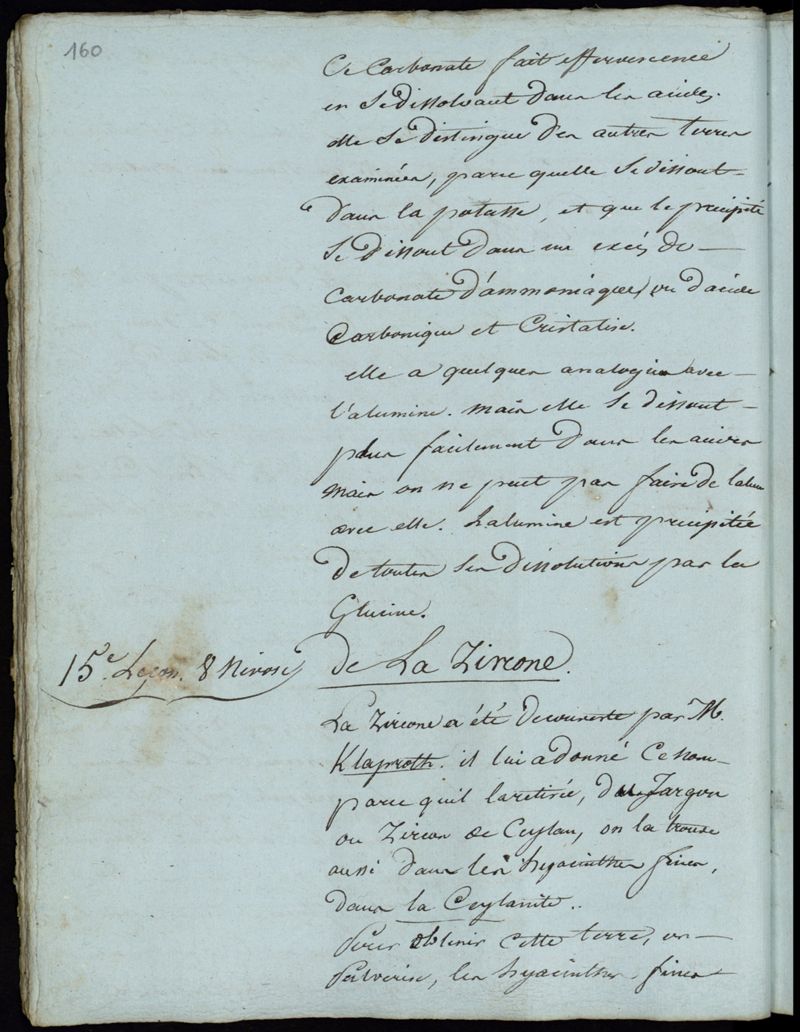 160
Ce Carbonate fait effervescence
en Se dissolvant dans les acides.
elle Se distingue des autres terres
examinées, parce quelle Se dissout
dans la potasse, et que le precipité
Se dissout dans un excés de
Carbonate d'ammoniaque, ou d'acide
Carbonique et Cristalise.
elle a quelques analogies avec
l'alumine. mais elle Se dissout
plus facilement dans les acides
mais on ne peut pas faire de lalun
avec elle. Lalumine est precipitée
de toutes Ses dissolutions par la
Glucine.
15e Leçon. 8 Nivose
de La Zircone.
La Zircone a été decouverte par M.
Klaproth. il lui a donné Ce nom
parce quil la retirée, du Jargon
ou Zircon de Ceylan, on la trouve
aussi dans les hyacinthes fines,
dans la Ceylanite..
Pour obtenir cette terre, on
Pulverise, les hyacinthes fines